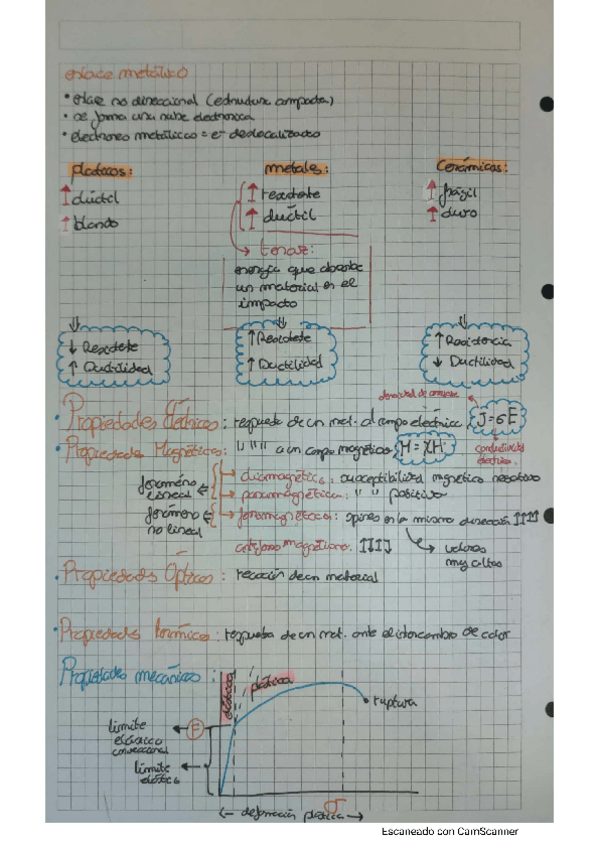 enlace metálico
• enlace no direccional (estructura compacta)
• se forma una nube electrónica
• electrones metálicos = e⁻ deslocalizado
plásticos: metales: Cerámicas:
↑ dúctil ↑ resistente ↑ frágil
↑ blando ↑ dúctil ↑ duro
→ tenaz:
energía que absorbe
un material en el
impacto
↓ Resistete ↑ Resistete ↑ Resistencia
↑ Ductilidad ↑ Ductilidad ↓ Ductilidad
densidad de corriente
• Propiedades Eléctricas: respuesta de un mat. al campo eléctrico J = σE
conductividad
eléctrica
• Propiedades Magnéticas: " " " " a un campo magnético M = χH
fenómeno
lineal
→ diamagnético: susceptibilidad magnética negativa
→ paramagnética: " " positivo
fenómeno
no lineal
→ ferromagnéticos: spines en la misma dirección
→ valores
muy altos
antiferromagnetismo:
• Propiedades Ópticas: reacción de un material
• Propiedades térmicas: respuesta de un mat. ante el intercambio de calor
Propiedades mecánicas:
elástica
plástica
ruptura
límite
elástico
convencional
F
límite
elástico
σ
← deformación plástica →
Escaneado con CamScanner